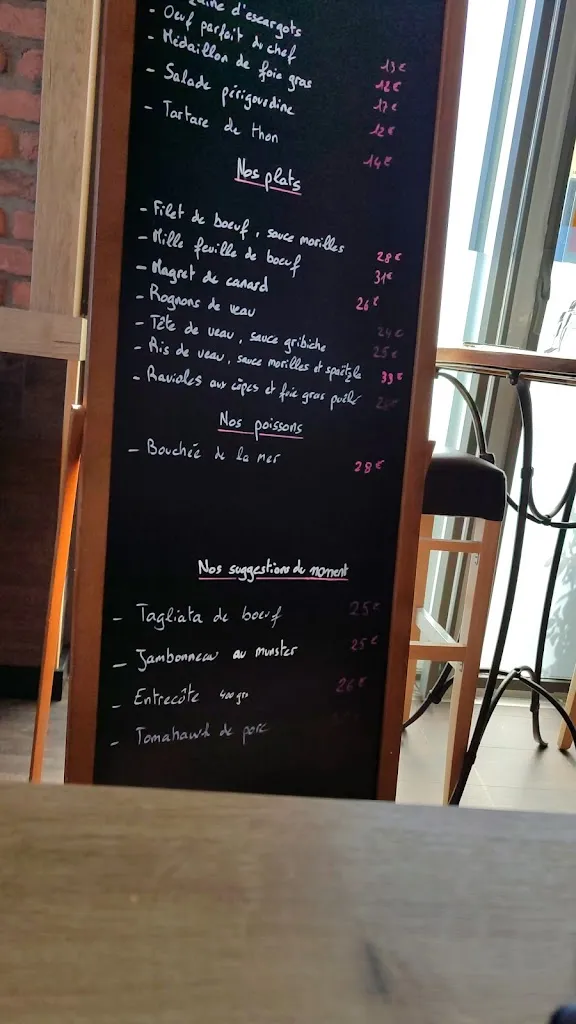 d'escargots
- Oeuf parfait du chef 13€
- Médaillon de foie gras 12€
- Salade périgourdine 17€
- Tartare de thon 12€
14€
Nos plats
- Filet de boeuf, sauce morilles 28€
- Mille feuille de boeuf 31€
- Magret de canard 26€
- Rognons de veau 24€
- Tête de veau, sauce gribiche 25€
- Ris de veau, sauce morilles et spaëtzle 33€
- Ravioles aux cèpes et foie gras poêlé
Nos poissons
- Bouchée de la mer 28€
Nos suggestions du moment
- Tagliata de boeuf 25€
- Jambonneau au munster 25€
- Entrecôte 400 grs 26€
- Tomahawk de porc